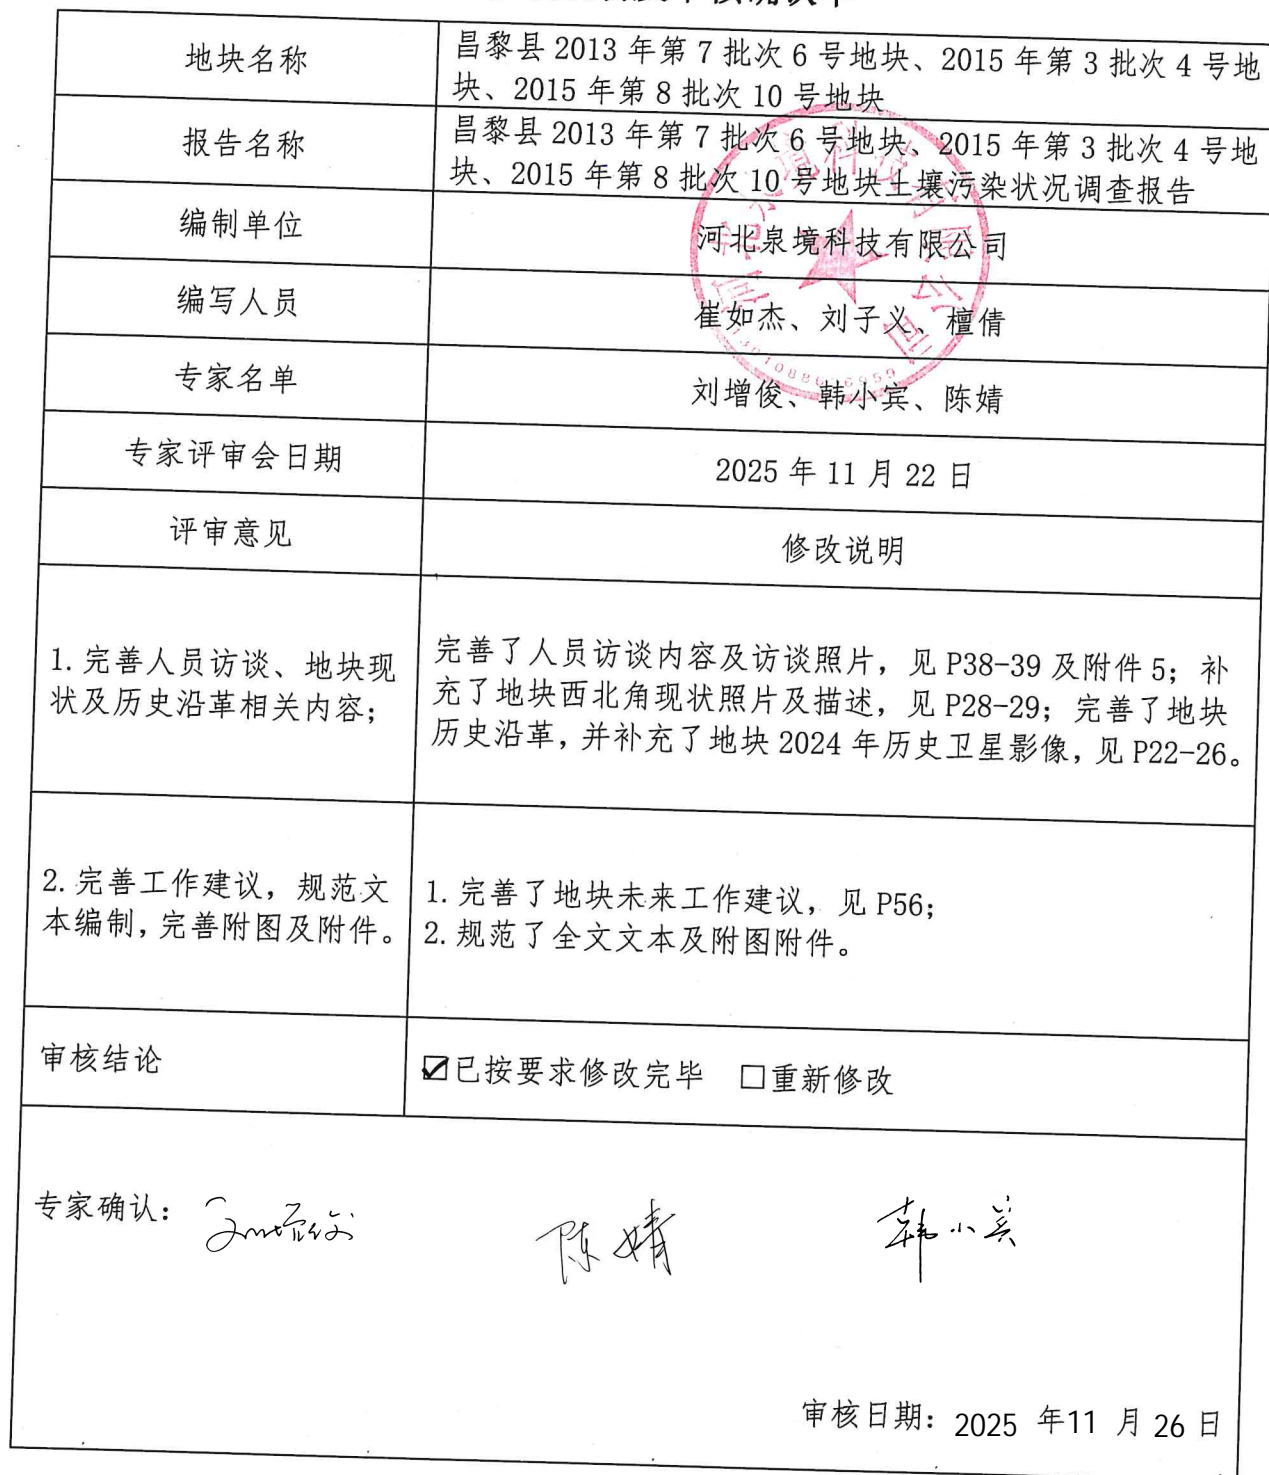 地块名称
昌黎县 2013 年第 7 批次 6 号地块、2015 年第 3 批次 4 号地
块、2015 年第 8 批次 10 号地块
报告名称
昌黎县 2013 年第 7 批次 6 号地块、2015 年第 3 批次 4 号地
块、2015 年第 8 批次 10 号地块土壤污染状况调查报告
编制单位
河北泉境科技有限公司
编写人员
崔如杰、刘子义、檀倩
专家名单
刘增俊、韩小宾、陈婧
专家评审会日期
2025 年 11 月 22 日
评审意见
修改说明
1. 完善人员访谈、地块现
状及历史沿革相关内容；
完善了人员访谈内容及访谈照片，见 P38-39 及附件 5；补
充了地块西北角现状照片及描述，见 P28-29；完善了地块
历史沿革，并补充了地块 2024 年历史卫星影像，见 P22-26。
2. 完善工作建议，规范文
本编制，完善附图及附件。
1. 完善了地块未来工作建议，见 P56；
2. 规范了全文文本及附图附件。
审核结论
☑已按要求修改完毕 □重新修改
专家确认：刘增俊 陈婧 韩小宾
审核日期：2025 年11 月 26 日